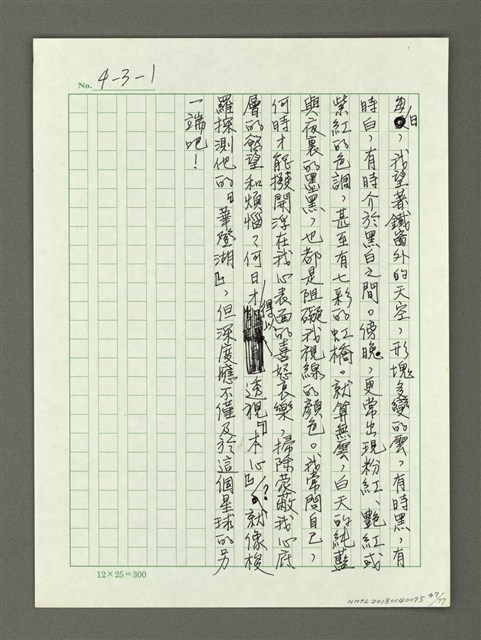 No. 4-3-1
每日，我望著鐵窗外的天空，形塊多變的雲，有時黑，有
時白，有時介於黑白之間。傍晚，更常出現粉紅、艷紅或
紫紅的色調，甚至有七彩的虹橋。就算無雲，白天的純藍
與夜裏的墨黑，也都是阻礙我視線的顏色。我常問自己，
何時才能撥開浮在我心表面的喜怒哀樂，掃除蒙蔽我心底
層的慾望和煩惱？何日才得以透視『本心』？就像梭
羅探測他的『華登湖』，但深度應不僅及於這個星球的另
一端吧！
12×25=300
NMTL20180140075 47/77